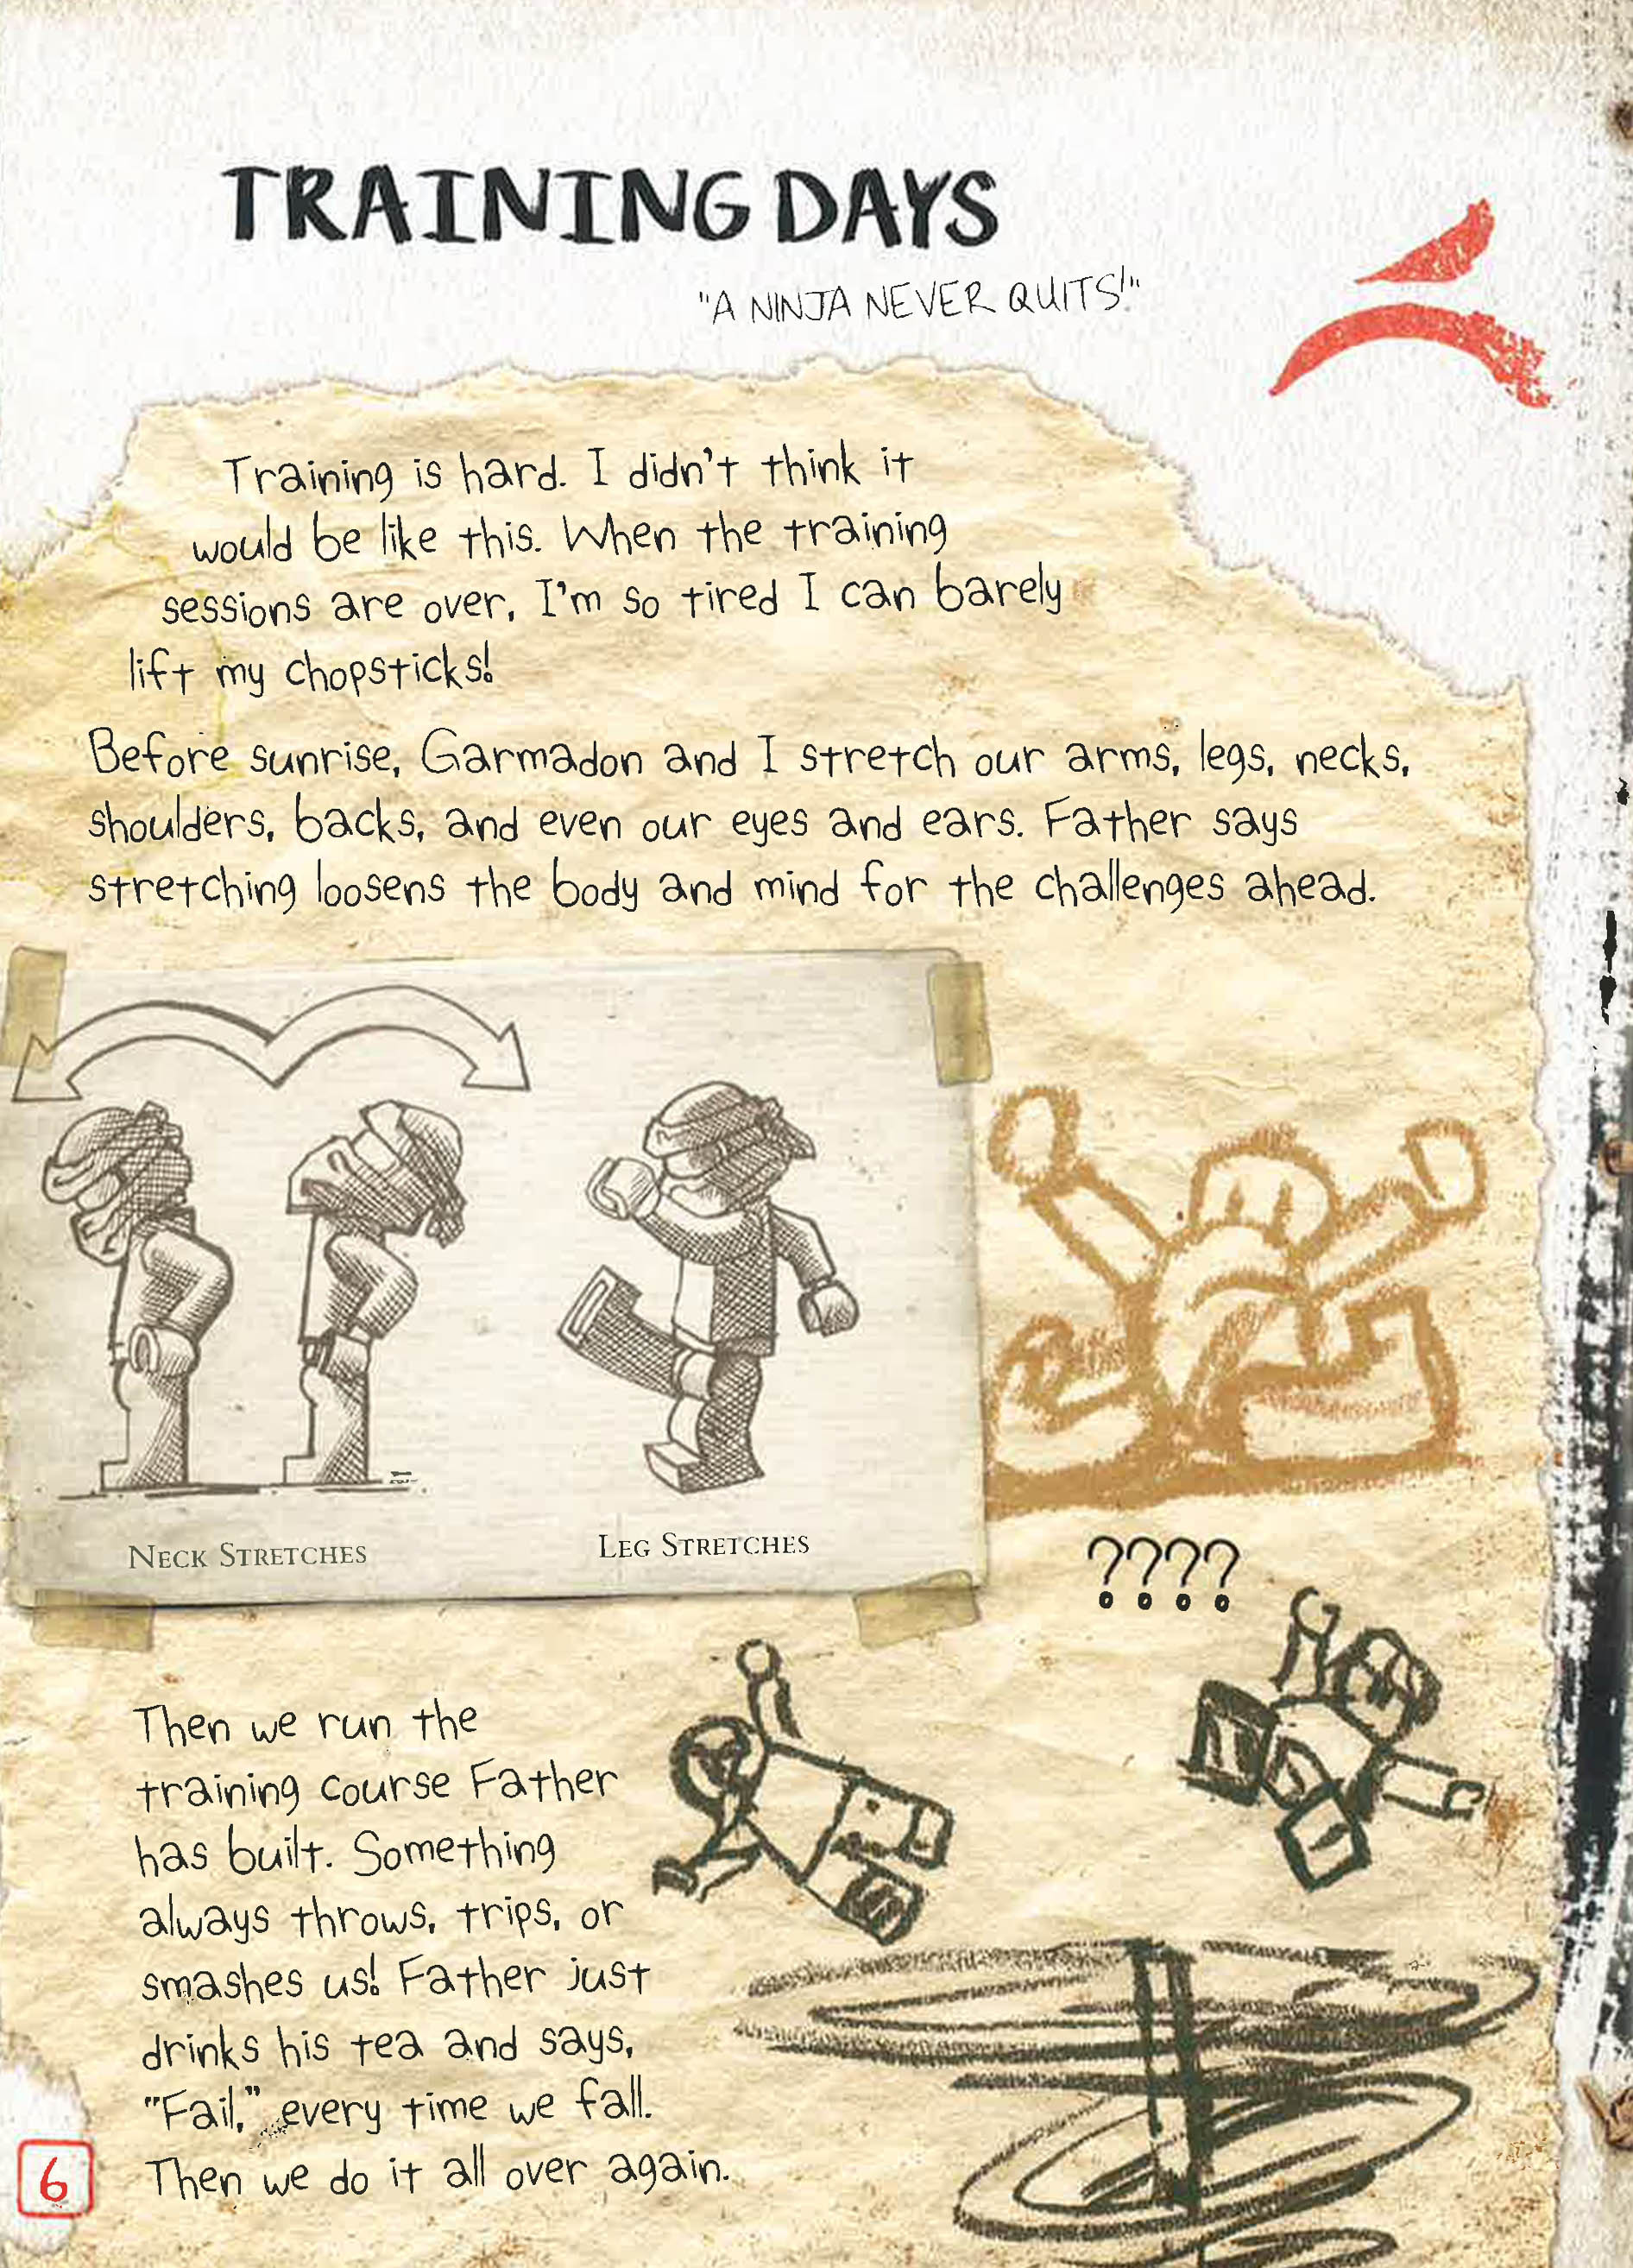 TRAINING DAYS
"A NINJA NEVER QUITS!"
Training is hard. I didn't think it
would be like this. When the training
sessions are over, I'm so tired I can barely
lift my chopsticks!
Before sunrise, Garmadon and I stretch our arms, legs, necks,
shoulders, backs, and even our eyes and ears. Father says
stretching loosens the body and mind for the challenges ahead.
NECK STRETCHES
LEG STRETCHES
????
Then we run the
training course Father
has built. Something
always throws, trips, or
smashes us! Father just
drinks his tea and says,
"Fail," every time we fall.
Then we do it all over again.
6